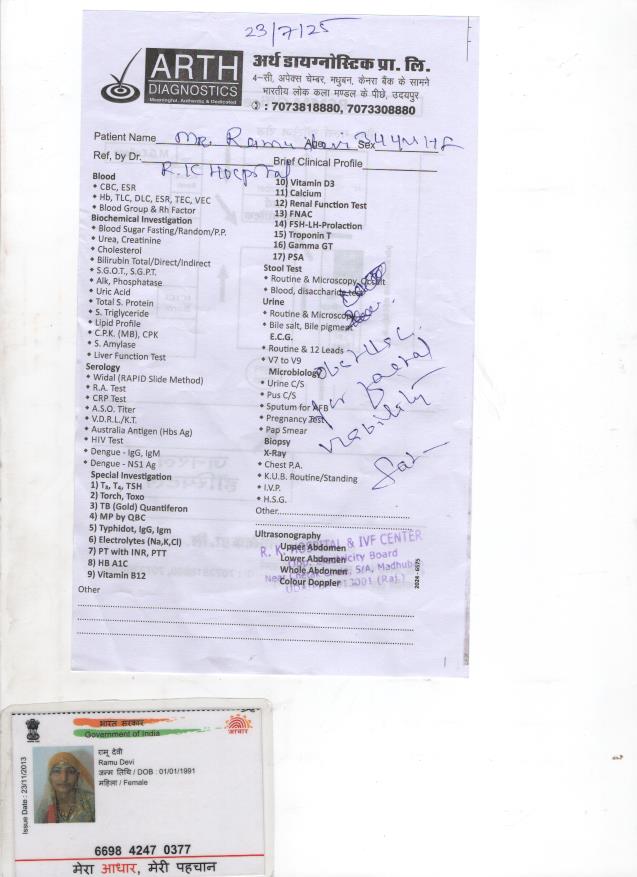 23/7/25
ARTH
DIAGNOSTICS
Meaningful, Authentic & Dedicated
अर्थ डायग्नोस्टिक प्रा. लि.
4-सी, अपेक्स चेम्बर, मधुबन, केनरा बैंक के सामने
भारतीय लोक कला मण्डल के पीछे, उदयपुर
: 7073818880, 7073308880
Patient Name Mr. Ramu Devi Age Sex
Ref, by Dr. R.K Hospital Brief Clinical Profile
Blood
CBC, ESR
Hb, TLC, DLC, ESR, TEC, VEC
Blood Group & Rh Factor
Biochemical Investigation
Blood Sugar Fasting/Random/P.P.
Urea, Creatinine
Cholesterol
Bilirubin Total/Direct/Indirect
S.G.O.T., S.G.P.T.
Alk, Phosphatase
Uric Acid
Total S. Protein
S. Triglyceride
Lipid Profile
C.P.K. (MB), CPK
S. Amylase
Liver Function Test
Serology
Widal (RAPID Slide Method)
R.A. Test
CRP Test
A.S.O. Titer
V.D.R.L./K.T.
Australia Antigen (Hbs Ag)
HIV Test
Dengue - IgG, IgM
Dengue - NS1 Ag
Special Investigation
1) T₃, T₄, TSH
2) Torch, Toxo
3) TB (Gold) Quantiferon
4) MP by QBC
5) Typhidot, IgG, Igm
6) Electrolytes (Na,K,Cl)
7) PT with INR, PTT
8) HB A1C
9) Vitamin B12
Other
10) Vitamin D3
11) Calcium
12) Renal Function Test
13) FNAC
14) FSH-LH-Prolaction
15) Troponin T
16) Gamma GT
17) PSA
Stool Test
Routine & Microscopy, Occult
Blood, disaccharide test
Urine
Routine & Microscopy
Bile salt, Bile pigment
E.C.G.
Routine & 12 Leads
V7 to V9
Microbiology
Urine C/S
Pus C/S
Sputum for AFB
Pregnancy Test
Pap Smear
Biopsy
X-Ray
Chest P.A.
K.U.B. Routine/Standing
I.V.P.
H.S.G.
Other
Ultrasonography
Upper Abdomen
Lower Abdomen
Whole Abdomen
Colour Doppler
for foetal
viability
R. K. HOSPITAL & IVF CENTER
Electricity Board
5/A, Madhuban
(Raj.)
2024 - 6675
भारत सरकार
Government of India
आधार
Issue Date : 23/11/2013
रामू देवी
Ramu Devi
जन्म तिथि / DOB : 01/01/1991
महिला / Female
6698 4247 0377
मेरा आधार, मेरी पहचान